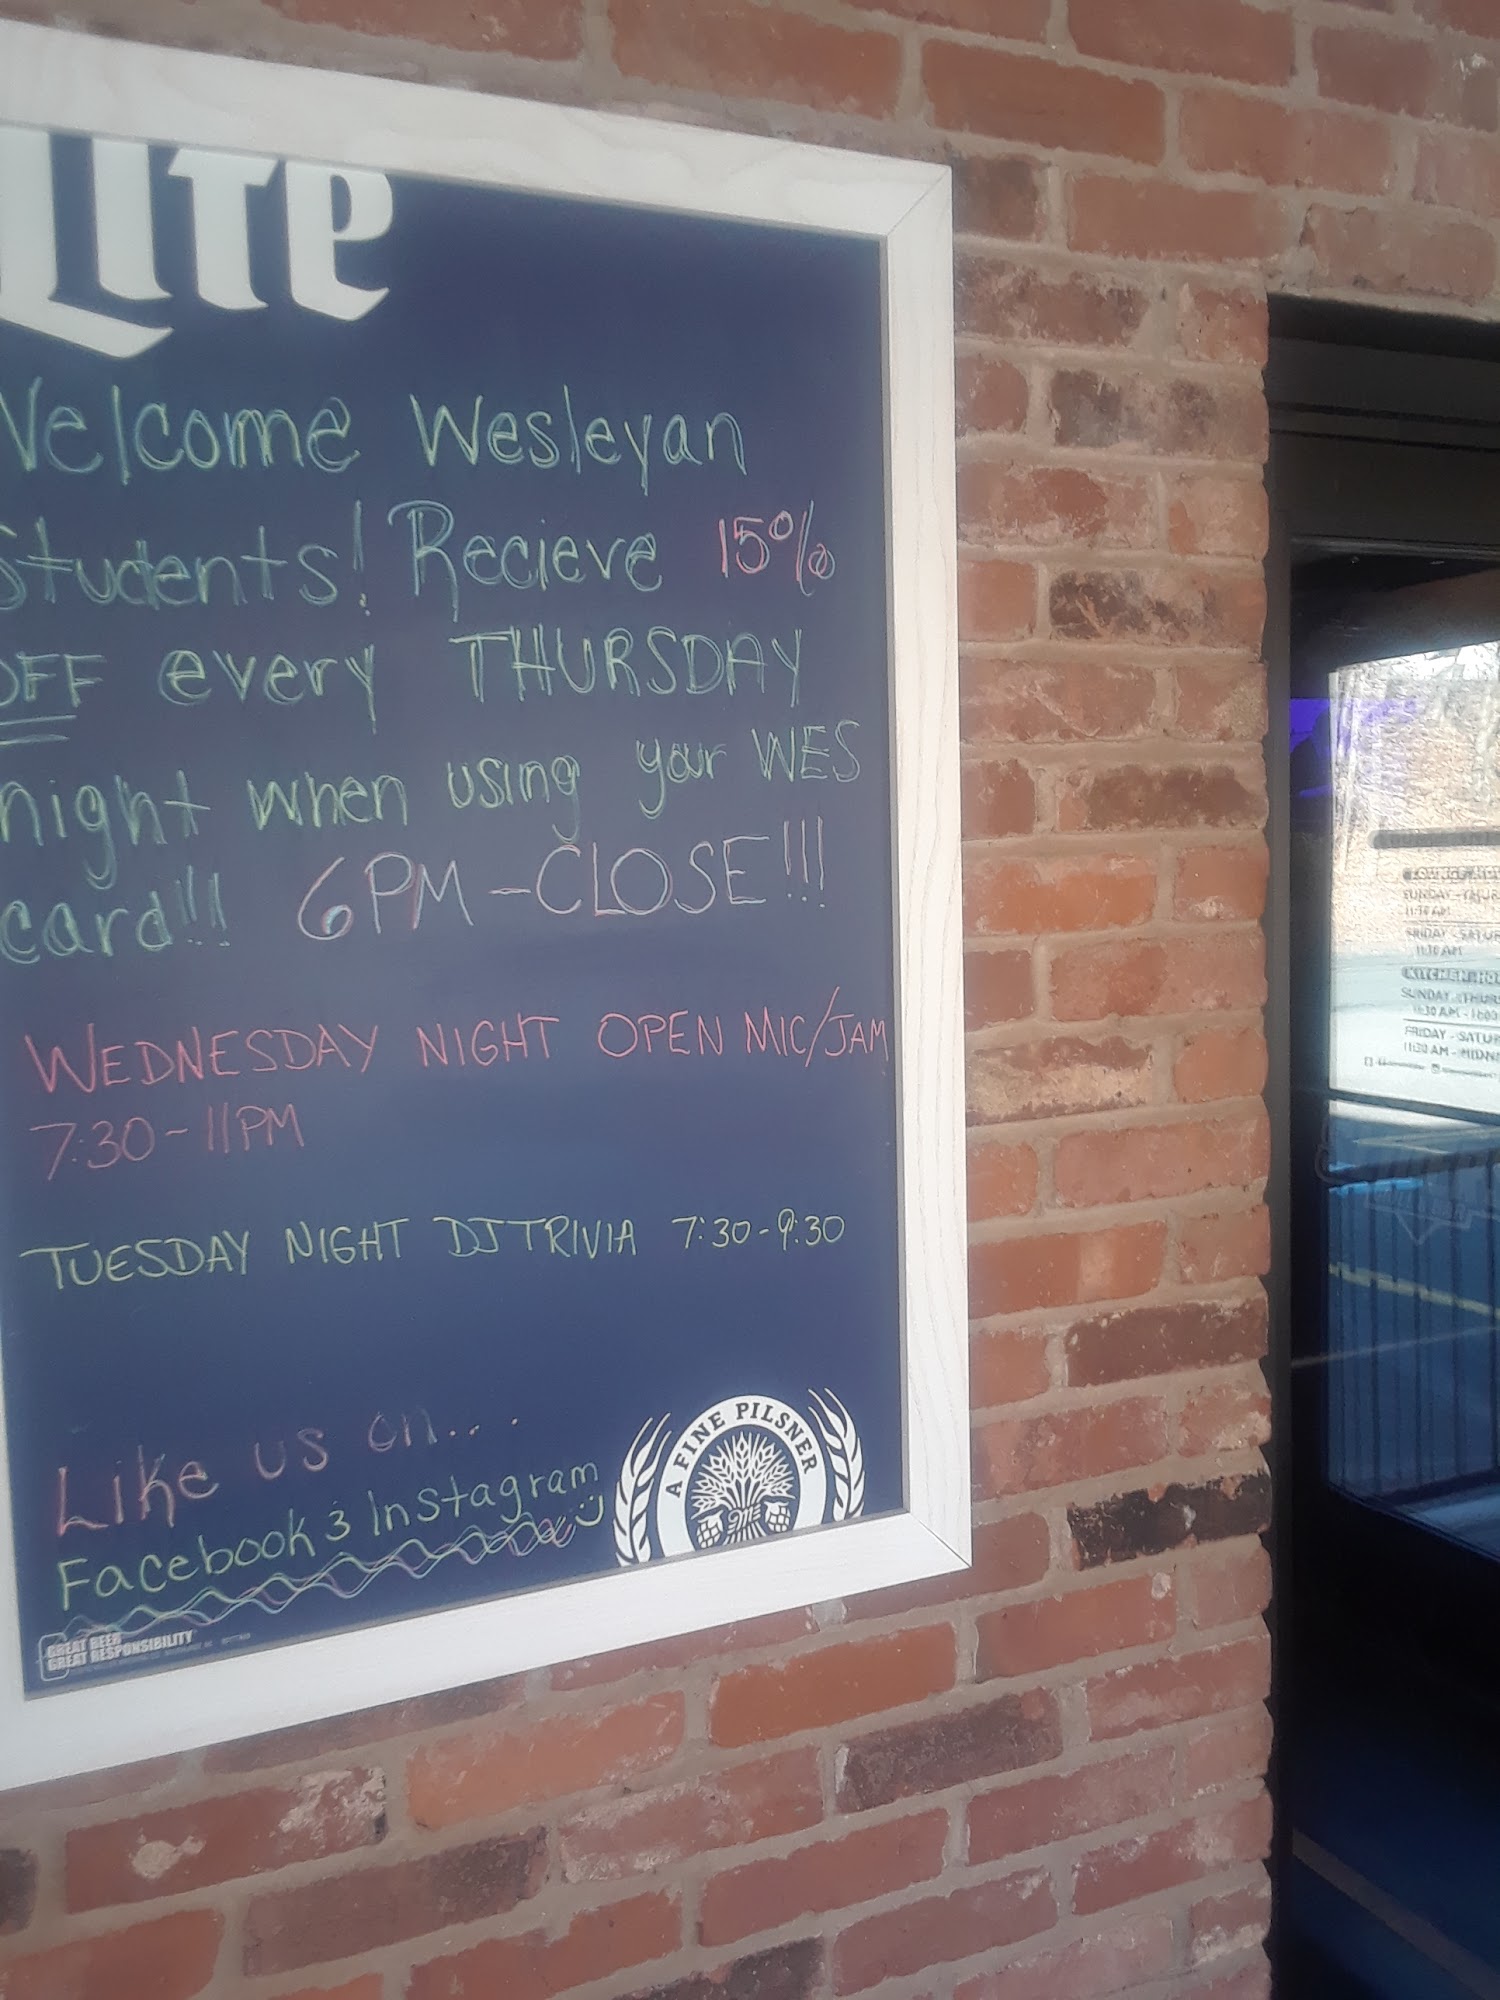 Lite
Welcome Wesleyan
Students! Recieve 15%
OFF every THURSDAY
night when using your WES
card!!! 6PM-CLOSE!!!
WEDNESDAY NIGHT OPEN MIC/JAM
7:30-11PM
TUESDAY NIGHT DJ TRIVIA 7:30-9:30
Like us on...
Facebook & Instagram
A FINE PILSNER
GREAT BEER
GREAT RESPONSIBILITY
SUNDAY - THURS
11:30 AM
FRIDAY - SATUR
11:30 AM
KITCHEN HO
SUNDAY - THURS
11:30 AM - 10:00
FRIDAY - SATU
11:30 AM - MIDN